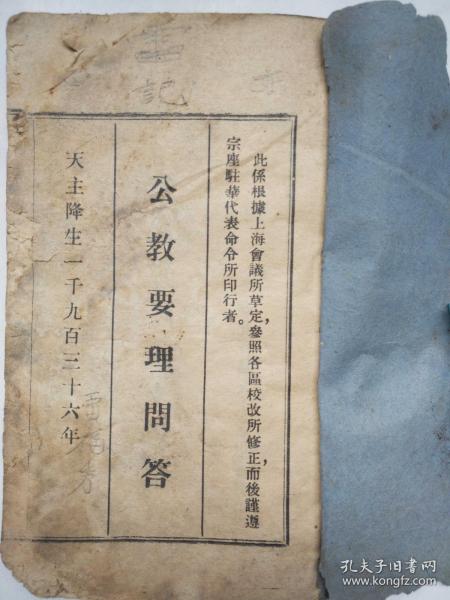 此係根據上海會議所草定，參照各區校改所修正，而後謹遵
宗座駐華代表命令所印行者。
公教要理問答
天主降生一千九百三十六年
記
孔夫子旧书网
www.kongfz.com